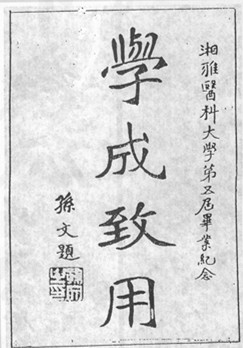 湘雅醫科大學第五屆畢業紀念
學成致用
孫文題